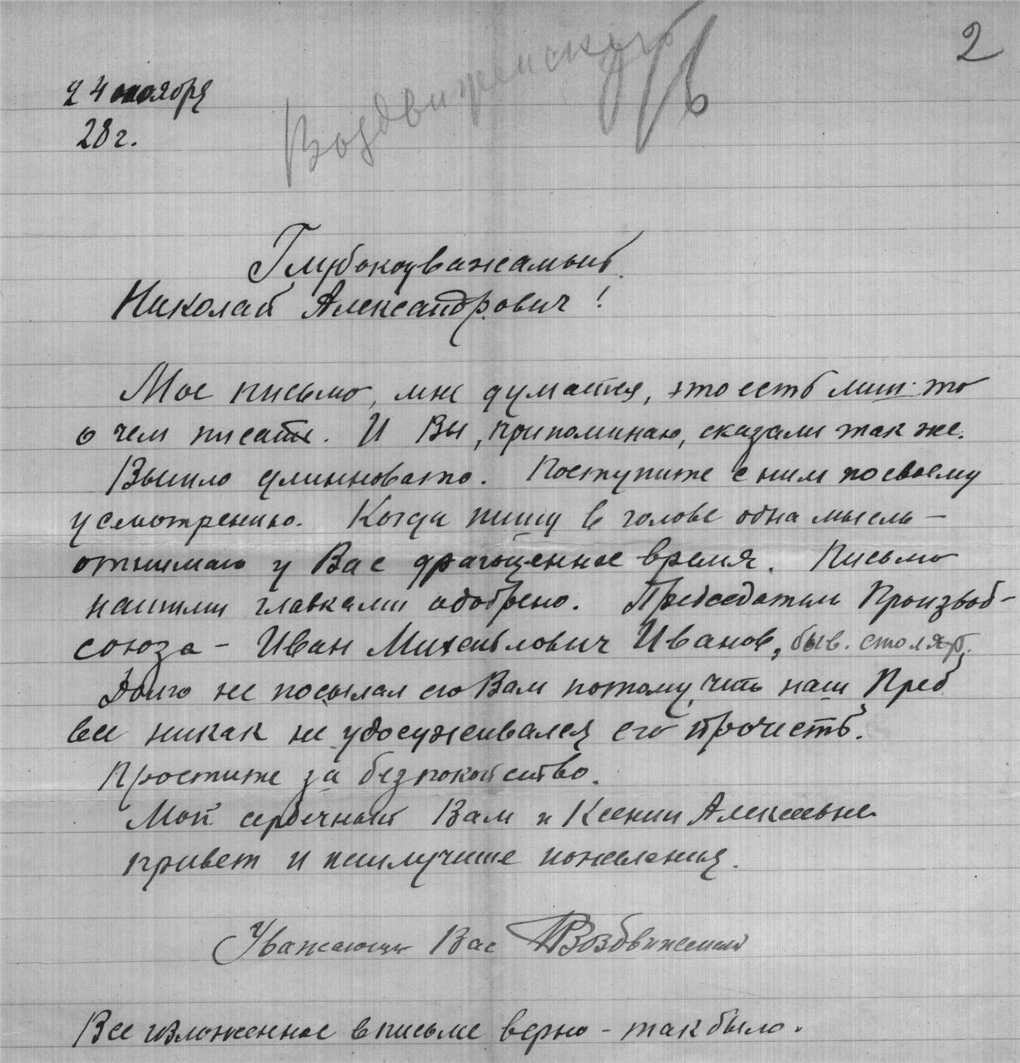 2
Воздвиженский
24 ноября
28 г.
Глубокоуважаемый
Николай Александрович!
Мое письмо, мне думается, это есть лишь то
о чем писать. И Вы, припоминаю, сказали так же.
Вышло длинновато. Поступите с ним по своему
усмотрению. Когда пишу в голове одна мысль –
отнимаю у Вас драгоценное время. Письмо
нашими главками одобрено. Председатель Производ-
союза – Иван Михайлович Иванов, быв. столяр.
Долго не посылал его Вам потому, что наш Пред
все никак не удосуживался его прочесть.
Простите за безпокойство.
Мой сердечный Вам и Ксении Алексеевне
привет и наилучшие пожелания.
Уважающий Вас Воздвиженский
Все изложенное в письме верно – так было.